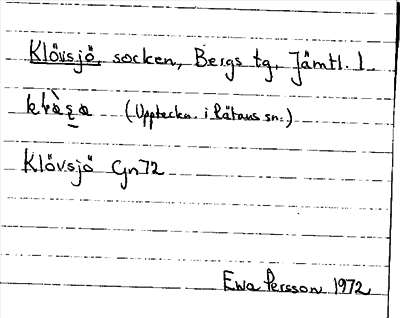 Klövsjö socken, Bergs tg, Jämtl. l.
(Uppteckn. i Rätans sn.)
Klövsjö Gn 72
Ewa Persson 1972